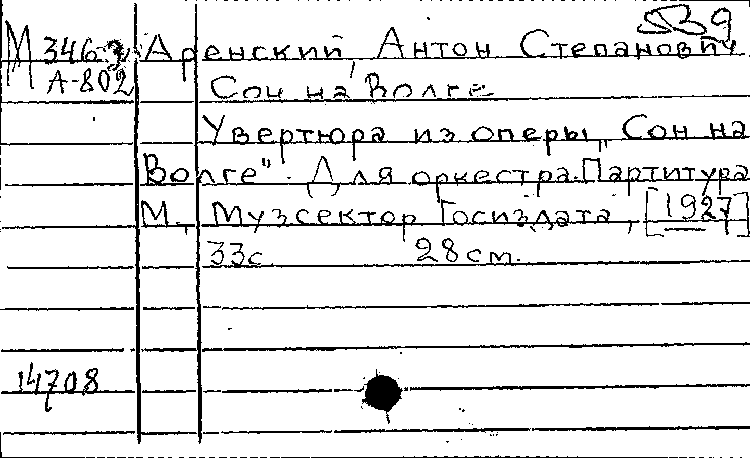 539
М 346 Аренский, Антон Степанович
А-802 Сон на Волге
Увертюра из оперы „Сон на
Волге". Для оркестра. Партитура
М., Музсектор Госиздата, [1927]
33с 28см.
14708